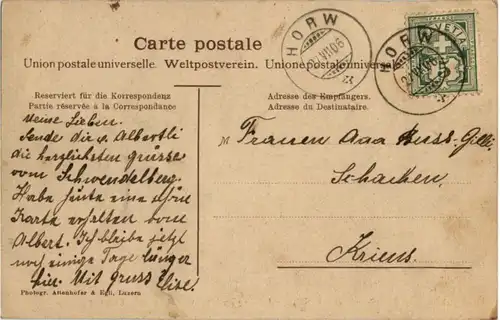 Carte postale
Union postale universelle. Weltpostverein. Unione postale univers
HORW
VII.06
HORW
HELVETIA
Reserviert für die Korrespondenz
Partie réservée à la Correspondance
Adresse des Empfängers.
Adresse du Destinataire.
Meine Lieben.
Sende die u. Albertli
die herzlichsten grüsse
vom Schwendelberg.
Habe heute eine schöne
Karte erhalten vom
Albert. Ich bleibe jetzt
noch einige Tage länger
hier. Mit gruss Elise
Frauen
Schachen,
Kriens.
Photogr. Altenhofer & Egli, Luzern